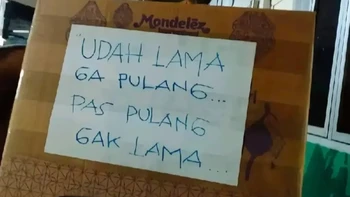 Mondelēz
UDAH LAMA
GA PULANG...
PAS PULANG
GAK LAMA....